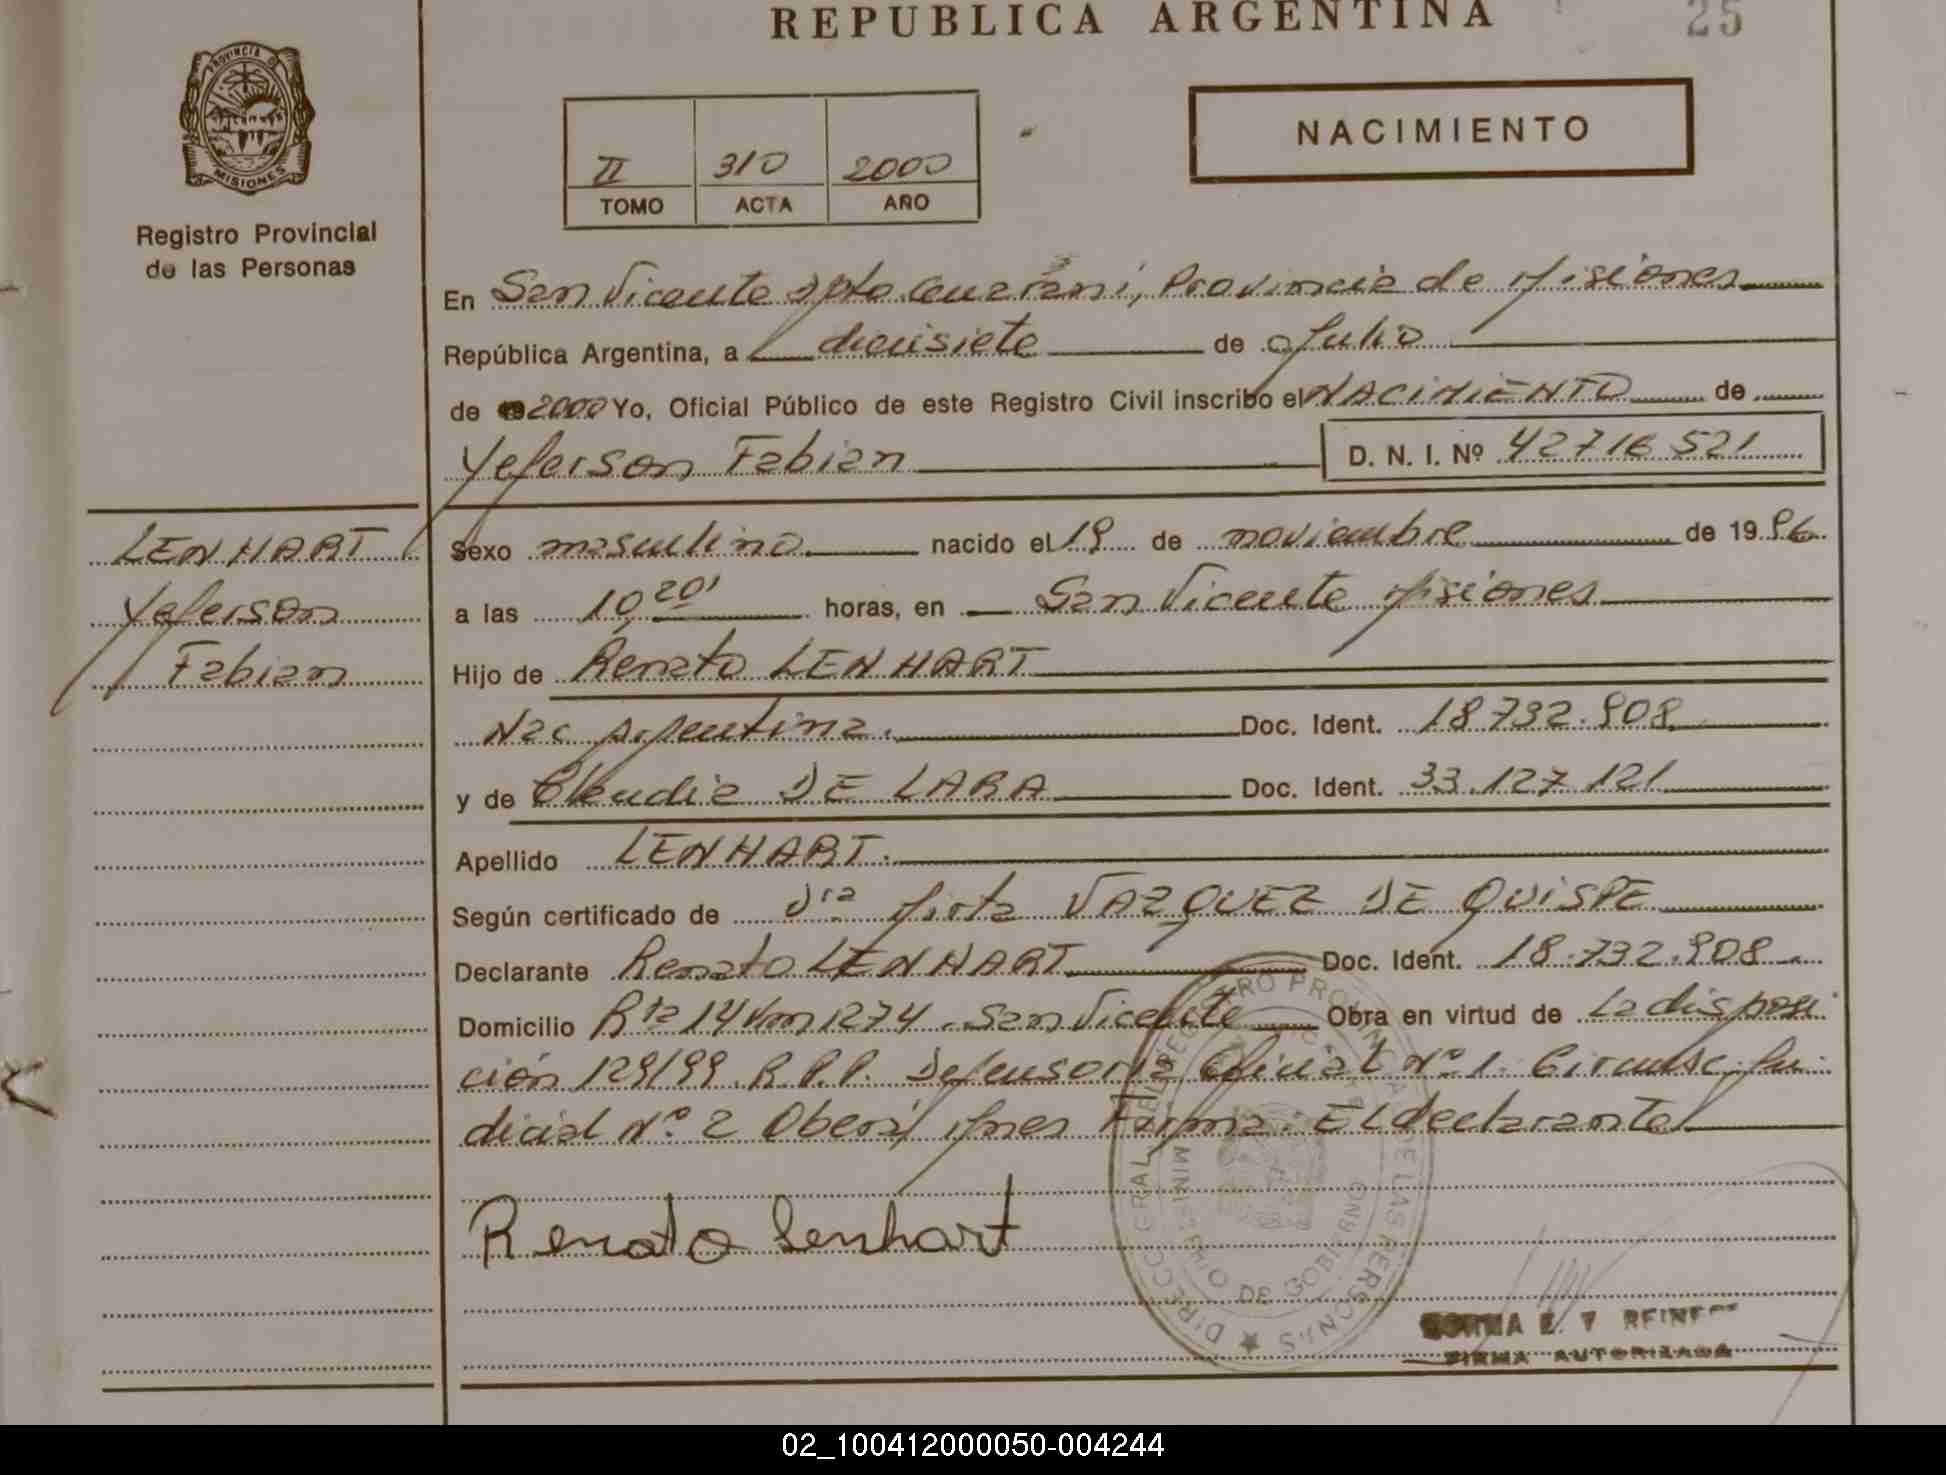 REPUBLICA ARGENTINA
25
PROVINCIA D
MISIONES
Registro Provincial
de las Personas
II 310 2000
TOMO ACTA AÑO
NACIMIENTO
En San Vicente Dpto. Guarani, Provincia de Misiones
República Argentina, a diecisiete de Julio
de 2000 Yo, Oficial Público de este Registro Civil inscribo el NACIMIENTO de
Yeferson Fabian D. N. I. Nº 42716521
LENHART
Yeferson
Fabian
Sexo masculino nacido el 19 de noviembre de 1996.
a las 10,20' horas, en San Vicente Misiones
Hijo de Renato LENHART
Nac Argentina. Doc. Ident. 18.732.908
y de Claudia DE LARA Doc. Ident. 33.127.121
Apellido LENHART.
Según certificado de Dra Mirta VAZQUEZ DE QUISPE
Declarante Renato LENHART Doc. Ident. 18.732.908
Domicilio Rta 14 Km 1274. San Vicente Obra en virtud de La disposi
ción 129/99. R.P.P. Defensoria Oficial Nº 1. Circunsc. Ju
dicial Nº 2 Oberá Mnes Firma. El declarante
Renato Lenhart
DIRECC. GRAL. DEL REGISTRO PROVINCIAL DE LAS PERSONAS
MINISTERIO DE GOBIERNO
NORMA E. V
FIRMA AUTORIZADA
02_100412000050-004244